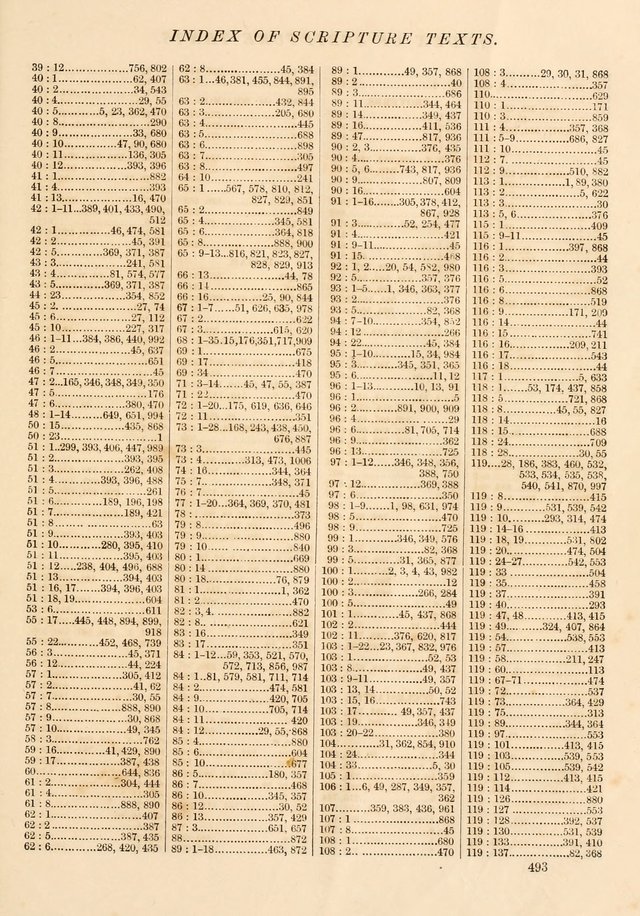 INDEX OF SCRIPTURE TEXTS.
39 : 12..................756, 802
40 : 1....................62, 407
40 : 2....................34, 543
40 : 4.....................29, 55
40 : 5............5, 23, 362, 470
40 : 8........................290
40 : 9....................33, 680
40 : 10...............47, 90, 680
40 : 11..................136, 305
40 : 12..................393, 396
41 : 1........................882
41 : 4........................393
41 : 13...................16, 470
42 : 1-11...389, 401, 433, 490,
512
42 : 1...............46, 474, 581
42 : 2....................45, 391
42 : 5..............369, 371, 387
43 : 3...................241, 581
43 : 4...............81, 574, 577
43 : 5..............369, 371, 387
44 : 23..................354, 852
45 : 2.....................27, 74
45 : 6....................27, 112
45 : 10..................227, 317
46 : 1-11...384, 386, 440, 992
46 : 2....................45, 637
46 : 5........................651
46 : 7.........................45
47 : 2...165, 346, 348, 349, 350
47 : 5........................176
47 : 6...................380, 470
48 : 1-14...........649, 651, 994
50 : 15..................435, 868
50 : 23.........................1
51 : 1..299, 393, 406, 447, 989
51 : 2...................393, 395
51 : 3...................262, 408
51 : 4..............393, 396, 488
51 : 5........................261
51 : 6..............189, 196, 198
51 : 7...................189, 421
51 : 8.........................63
51 : 9...................393, 403
51 : 10.............280, 395, 410
51 : 11..................395, 403
51 : 12......238, 404, 496, 688
51 : 13..................394, 403
51 : 16, 17.........394, 396, 403
51 : 18, 19...................604
53 : 6........................611
55 : 17.....445, 448, 894, 899,
918
55 : 22.............452, 468, 739
56 : 3....................45, 371
56 : 12...................44, 224
57 : 1...................305, 412
57 : 2.....................41, 62
57 : 7.....................30, 55
57 : 8...................888, 890
57 : 9....................30, 868
57 : 10...................49, 345
58 : 3........................762
59 : 16..............41, 429, 890
59 : 17..................387, 438
60.......................644, 836
61 : 2...................304, 444
61 : 4........................305
61 : 8...................888, 890
62 : 1........................407
62 : 2........................387
62 : 5...................387, 435
62 : 6..............268, 420, 435
62 : 8....................45, 384
63 : 1...46,381, 455, 844, 891,
895
63 : 2...................432, 844
63 : 3...................205, 680
63 : 4........................445
63 : 5........................688
63 : 6........................898
63 : 7........................305
63 : 8........................497
64 : 10.......................241
65 : 1.....567, 578, 810, 812,
827, 829, 851
65 : 2........................849
65 : 4...................345, 581
65 : 6...................364, 818
65 : 8...................888, 900
65 : 9-13...816, 821, 823, 827,
828, 829, 913
66 : 13....................44, 78
66 : 14.......................865
66 : 16...............25, 90, 844
67 : 1-7........51, 626, 635, 978
67 : 2........................622
67 : 3...................615, 620
68 : 1-35.15,176,351,717,909
69 : 1........................675
69 : 17.......................418
69 : 34.......................470
71 : 3-14........45, 47, 55, 387
71 : 22.......................470
72 : 1-20...175, 619, 636, 646
72 : 11.......................351
73 : 1-28...168, 243, 438, 450,
676, 887
73 : 3........................445
73 : 4.............313, 473, 1006
74 : 16..................344, 364
75 : 7...................348, 371
76 : 7.........................45
77 : 1-20...364, 369, 370, 481
77 : 7........................373
79 : 8........................496
79 : 9........................880
79 : 10.......................840
80 : 1........................669
80 : 14.......................880
80 : 18...................76, 879
81 : 1.....................1, 362
81 : 2........................470
82 : 3, 4.....................882
82 : 8........................621
83 : 16.......................349
83 : 17.......................351
84 : 1-12...59, 353, 521, 570,
572, 713, 856, 987
84 : 1..81, 579, 581, 711, 714
84 : 2...................474, 581
84 : 9...................420, 705
84 : 10..................705, 714
84 : 11.......................420
84 : 12..............29, 55, 868
85 : 4........................880
85 : 6........................604
85 : 10.......................677
86 : 5...................180, 357
86 : 7........................468
86 : 10..................345, 357
86 : 12....................30, 52
86 : 13..................357, 429
87 : 3...................651, 657
88............................872
89 : 1-18................463, 872
89 : 1...............49, 357, 868
89 : 2.........................40
89 : 3........................686
89 : 11..................344, 464
89 : 14..................349, 437
89 : 16..................411, 536
89 : 47..................817, 936
90 : 2, 3................376, 435
90 : 4........................376
90 : 5, 6...........743, 817, 936
90 : 9...................807, 809
90 : 16.......................604
91 : 1-16......305, 378, 412,
867, 928
91 : 3...............52, 254, 477
91 : 4........................421
91 : 9-11......................45
91 : 15.......................468
92 : 1, 2.....20, 54, 582, 980
92 : 5...................357, 376
93 : 1-5......1, 346, 363, 377
93 : 2........................376
93 : 5....................82, 368
94 : 7-10................354, 852
94 : 12.......................266
94 : 22...................45, 384
95 : 1-10............15, 34, 984
95 : 3..............345, 351, 365
95 : 6.....................11, 12
96 : 1-13.............10, 13, 91
96 : 1..........................5
96 : 2..............891, 900, 909
96 : 4.........................29
96 : 6...............81, 705, 714
96 : 9........................362
96 : 13.......................725
97 : 1-12......346, 348, 356,
388, 750
97 : 12..................369, 388
97 : 6........................350
98 : 1-9........1, 98, 631, 974
98 : 5........................470
98 : 9........................725
99 : 1..............346, 349, 576
99 : 3....................82, 368
99 : 5...............31, 365, 877
100 : 1.........2, 3, 4, 43, 982
100 : 2........................12
100 : 3..................266, 284
100 : 5........................49
101 : 1..............45, 437, 868
102 : 2.......................444
102 : 11............376, 620, 817
103 : 1-22...23, 367, 832, 976
103 : 1....................52, 53
103 : 8...................49, 437
103 : 9-11................49, 357
103 : 13, 14...............50, 52
103 : 15, 16..................743
103 : 17.............49, 357, 437
103 : 19.................346, 349
103 : 20-22...................380
104..............31, 362, 854, 910
104 : 24......................344
104 : 33....................5, 30
105 : 1.......................359
106 : 1...6, 49, 287, 349, 357,
362
107..........359, 383, 436, 961
107 : 1.......................868
107 : 8........................45
108 : 1.......................680
108 : 2.......................470
108 : 3............29, 30, 31, 868
108 : 4.......................357
110...........................629
110 : 1.......................171
110 : 3.......................859
111 : 4..................357, 368
111 : 5-9................686, 827
111 : 10.......................45
112 : 7........................45
112 : 9..................510, 882
113 : 1................1, 89, 380
113 : 2....................5, 622
113 : 3........................30
113 : 5, 6....................376
115 : 1.......................409
115 : 9-11.....................45
116 : 1..................397, 868
116 : 2........................44
116 : 3.......................393
116 : 5........................52
116 : 6.......................868
116 : 8.......................519
116 : 9..................171, 209
116 : 14.......................44
116 : 15......................741
116 : 16.................209, 211
116 : 17......................543
116 : 18.......................44
117 : 1....................5, 633
118 : 1........53, 174, 437, 858
118 : 5..................721, 868
118 : 8...............45, 55, 827
118 : 14.......................16
118 : 15......................688
118 : 24......................709
118 : 28...................30, 55
119....28, 186, 383, 460, 532,
533, 534, 535, 538,
540, 541, 870, 997
119 : 8.......................415
119 : 9.............531, 539, 542
119 : 10............293, 314, 474
119 : 14-16...................413
119 : 18, 19.............531, 802
119 : 20.................474, 504
119 : 24-27..............542, 553
119 : 33......................504
119 : 35......................458
119 : 37......................391
119 : 40......................293
119 : 47, 48.............413, 415
119 : 49............324, 407, 864
119 : 54.................538, 553
119 : 57......................413
119 : 58.................211, 247
119 : 60......................113
119 : 67-71...................474
119 : 72......................537
119 : 73.................364, 429
119 : 75......................313
119 : 89.................344, 364
119 : 97......................553
119 : 101................413, 415
119 : 103................539, 553
119 : 105................539, 542
119 : 112................413, 415
119 : 114.....................421
119 : 126.....................880
119 : 127.....................553
119 : 128................392, 537
119 : 130................531, 539
119 : 133................391, 410
119 : 137.................82, 368
493